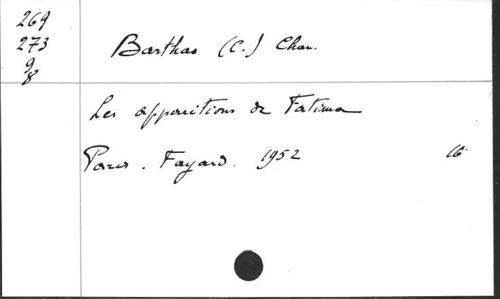 269
273
9
8
Barthas (C.) Chan.
Les apparitions de Fatima
Paris. Fayard. 1952 16